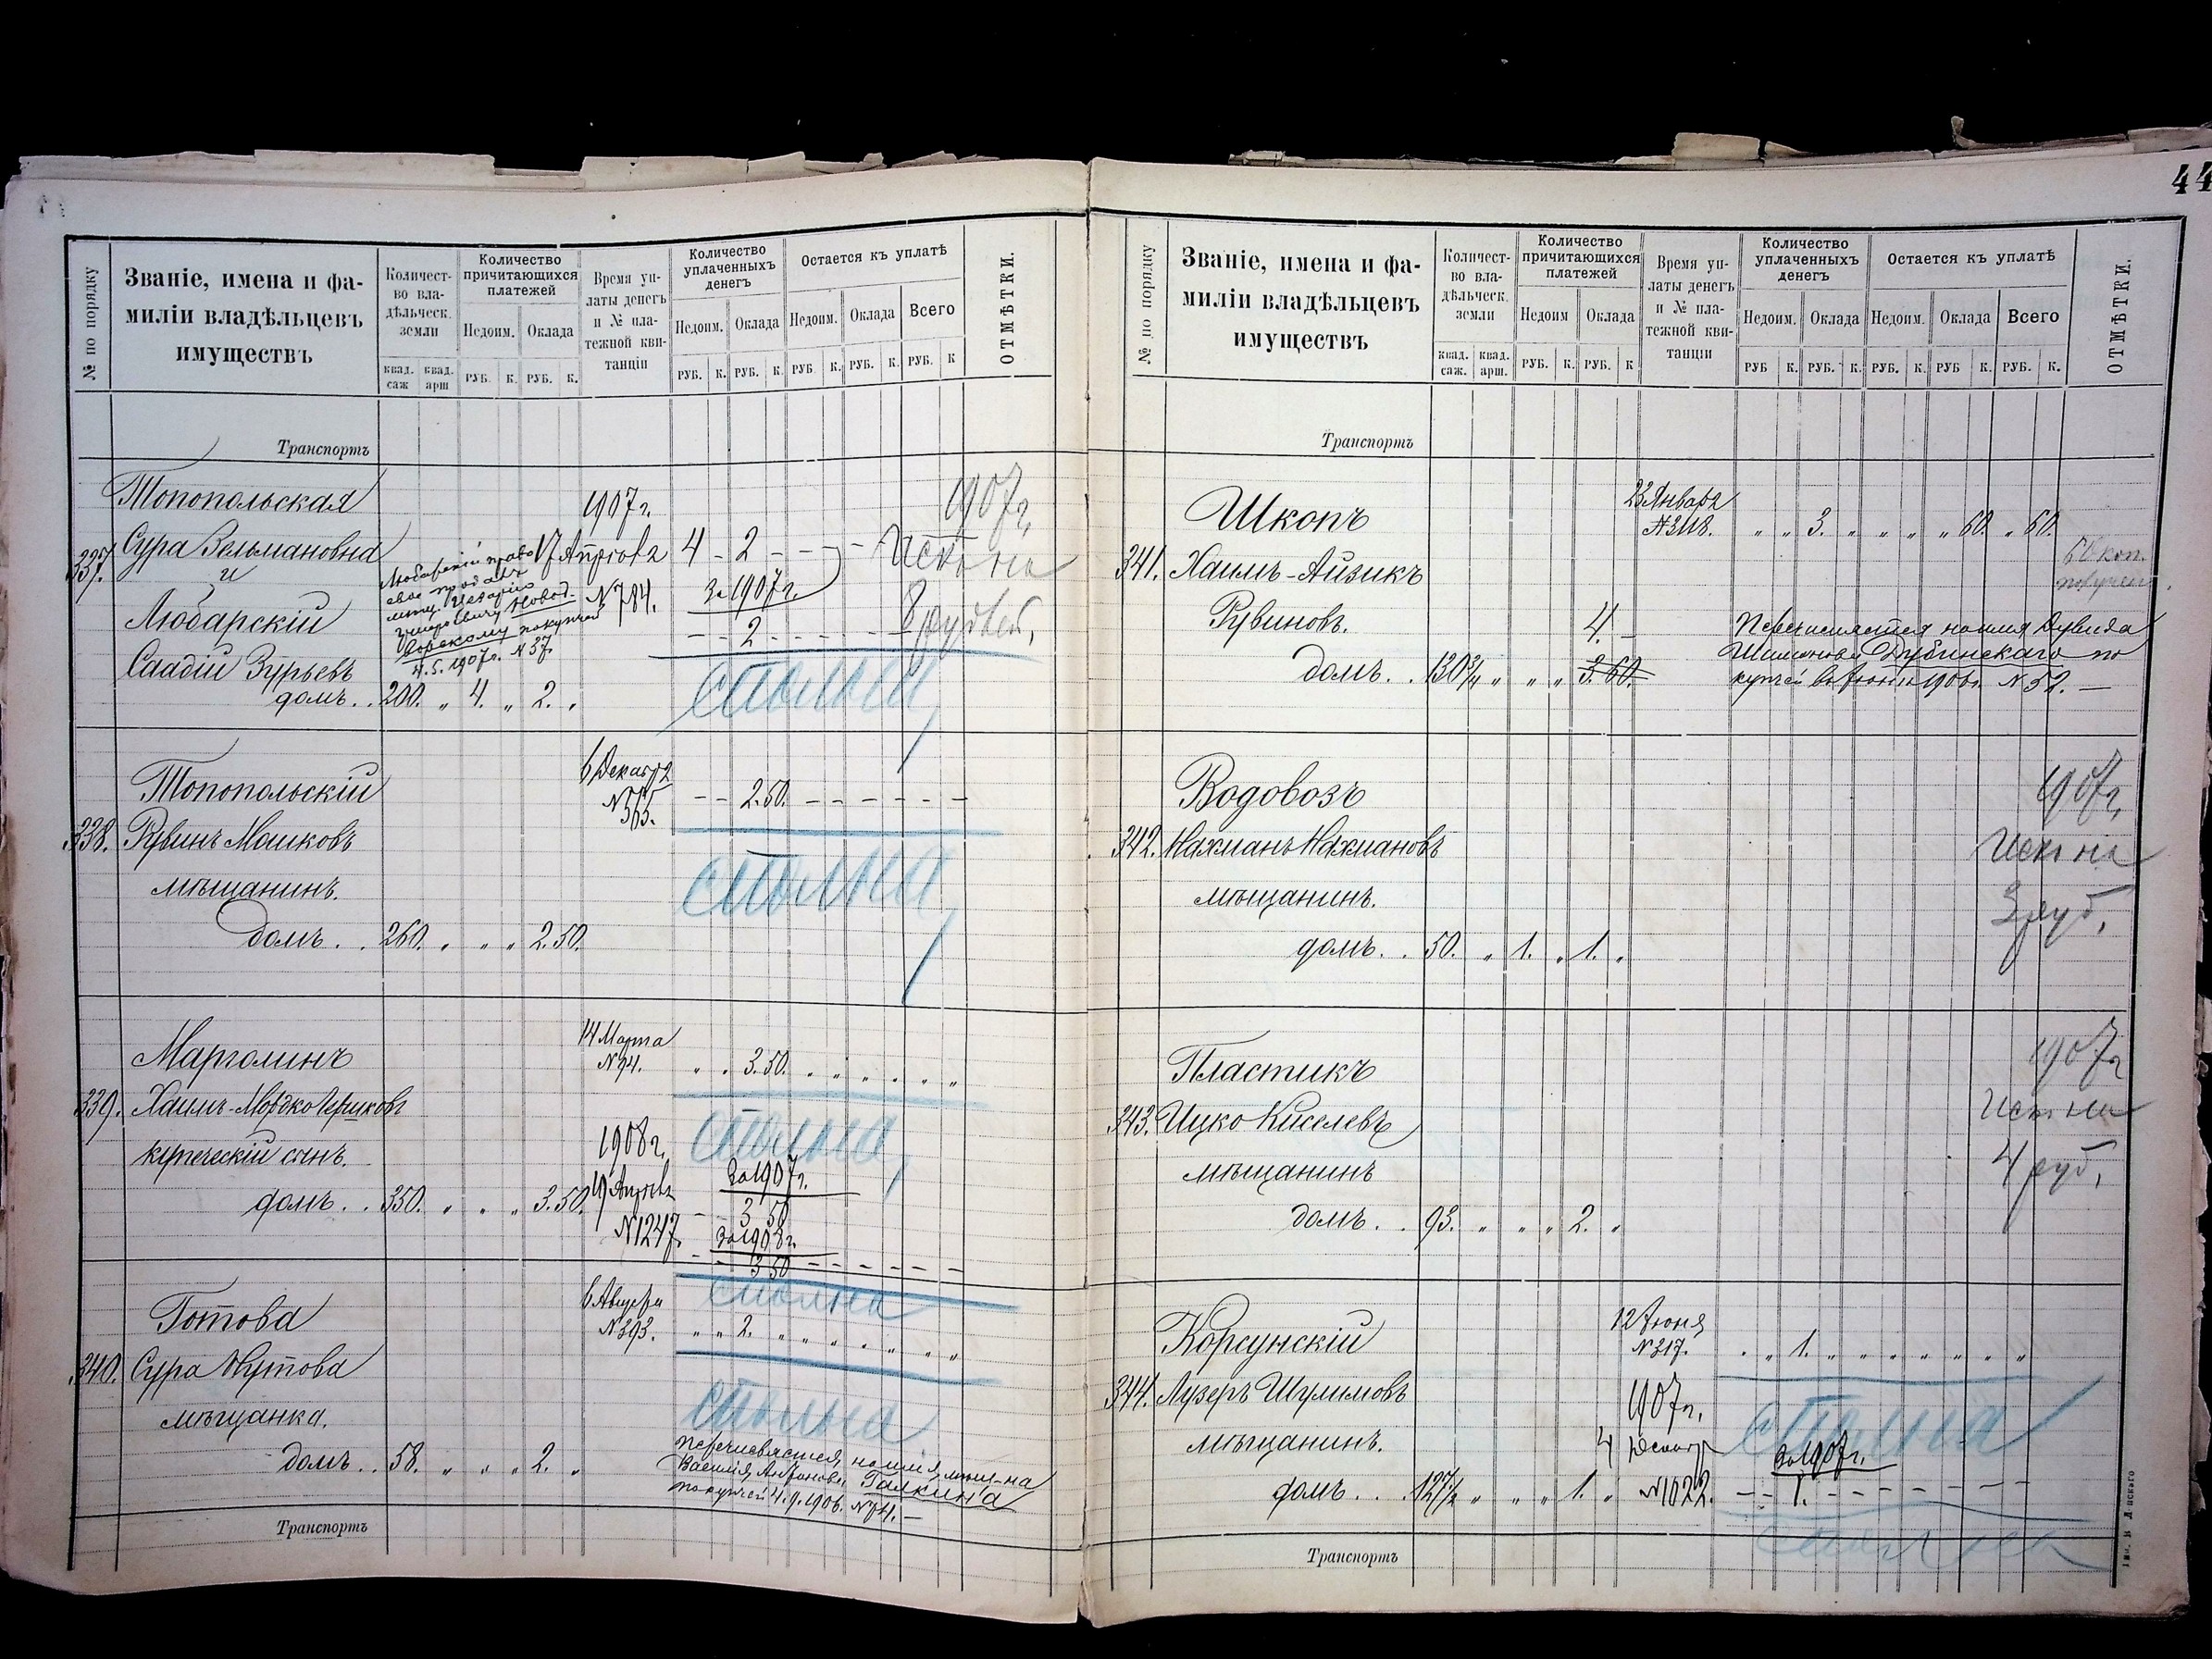 44
№ по порядку
Званіе, имена и фа-
миліи владѣльцевъ
имуществъ
Количест-
во вла-
дѣльческ.
земли
квад. саж
квад. арш
Количество
причитающихся
платежей
Недоим. Оклада
РУБ. К. РУБ. К.
Время уп-
латы денегъ
и № пла-
тежной кви-
танціи
Количество
уплаченныхъ
денегъ
Недоим. Оклада
РУБ. К. РУБ. К.
Остается къ уплатѣ
Недоим. Оклада Всего
РУБ К. РУБ. К. РУБ. К
ОТМѢТКИ.
Транспортъ
337. Топопольская
Сура Зельмановна
и
Любарскій
Саадій Зурьевъ
домъ . . 200. „ 4. „ 2. „
Любарскій право
свое продалъ
покупчей
4.5.1907г. № 37.
1907г.
17 Апрѣля
№ 784.
4 - 2 - - -
За 1907г.
- - 2 - - - - - -
сполна
1907г.
Иск. на
8 рублей,
338. Топопольскій
Рувинъ Машковъ
мѣщанинъ.
домъ . . 260. „ „ „ 2.50.
6 Декабря
№ 565.
- - 2.50. - - - - - -
сполна
339. Марголинъ
Хаимъ-Мордко Гершковъ
купеческій сынъ.
домъ . . 350. „ „ „ 3.50.
14 Марта
№ 94.
„ „ 3.50. „ „ „ „ „ „
сполна
1908г.
19 Апрѣля
№ 1247.
За 1907г.
- - 3 50
За 1908г.
- - 3 50 - - - - - -
сполна
340. Готова
Сура Нутова
мѣщанка.
домъ . . 58. „ „ „ 2. „
6 Августа
№ 393.
„ „ 2. „ „ „ „ „ „ „
сполна
Перечисляется на имя мѣщ-на
Василія Антонова Галкина
покупчей 4.9.1906. № 74. —
Транспортъ
№ по порядку
Званіе, имена и фа-
миліи владѣльцевъ
имуществъ
Количест-
во вла-
дѣльческ.
земли
квад. саж.
квад. арш.
Количество
причитающихся
платежей
Недоим Оклада
РУБ. К. РУБ. К
Время уп-
латы денегъ
и № пла-
тежной кви-
танціи
Количество
уплаченныхъ
денегъ
Недоим. Оклада
РУБ К. РУБ. К.
Остается къ уплатѣ
Недоим. Оклада Всего
РУБ. К. РУБ К. РУБ. К.
ОТМѢТКИ.
Транспортъ
341. Шкопъ
Хаимъ-Айзикъ
Рувиновъ.
домъ . . 130 3/4 „ „ „ 3.60.
4. -
23 Января
№ 3118.
„ „ 3. „ „ „ „ 60. „ 60.
60 коп.
получены
Перечисляется на имя Дувида
Шимонова Дубинскаго по
купчей 1906г. № 52. —
342. Водовозъ
Нахманъ Нахмановъ
мѣщанинъ.
домъ . . 50. „ 1. „ 1. „
1907г.
Иск. на
3 руб,
343. Пластикъ
Ицко Киселевъ
мѣщанинъ
домъ . . 93. „ „ „ 2. „
1907г
Иск. на
4 руб,
344. Корсунскій
Лузеръ Шулимовъ
мѣщанинъ.
домъ . . . 127 1/2 „ „ „ 1. „
12 Іюня
№ 317.
„ „ 1. „ „ „ „ „ „ „
сполна
1907г.
4 Декабр
№ 1022.
За 1907г.
- - 1. - - - - - - -
сполна
Транспортъ